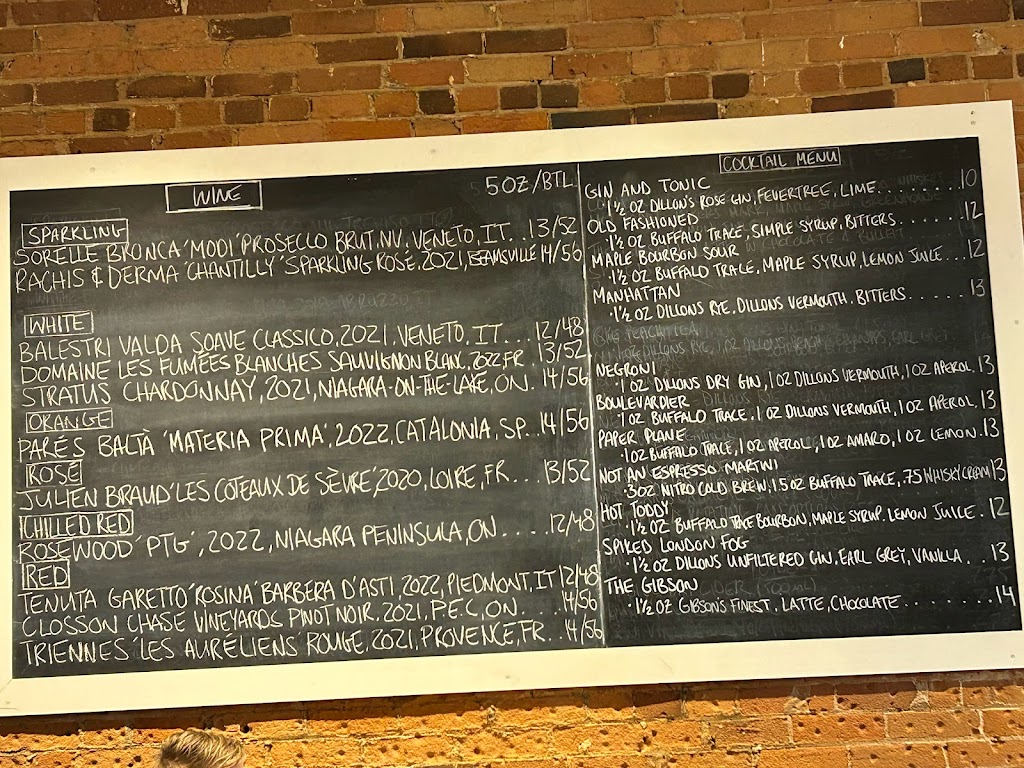 WINE
5OZ/BTL
SPARKLING
SORELLE BRONCA 'MODI' PROSECCO BRUT, NV, VENETO, IT. . 13/52
RACHIS & DERMA 'CHANTILLY' SPARKLING ROSÉ, 2021, BEAMSVILLE 14/56
WHITE
BALESTRI VALDA SOAVE CLASSICO, 2021, VENETO, IT. . . 12/48
DOMAINE LES FUMÉES BLANCHES SAUVIGNON BLANC, 2022, FR . 13/52
STRATUS CHARDONNAY, 2021, NIAGARA-ON-THE-LAKE, ON. . 14/56
ORANGE
PARÉS BALTÀ 'MATERIA PRIMA', 2022, CATALONIA, SP. . 14/56
ROSÉ
JULIEN BRAUD 'LES COTEAUX DE SÈVRE', 2020, LOIRE, FR . . . 13/52
CHILLED RED
ROSEWOOD 'PTG', 2022, NIAGARA PENINSULA, ON. . . . 12/48
RED
TENUTA GARETTO 'ROSINA' BARBERA D'ASTI, 2022, PIEDMONT, IT 12/48
CLOSSON CHASE VINEYARDS PINOT NOIR. 2021, P.E.C, ON. . . . 14/56
TRIENNES 'LES AURÉLIENS' ROUGE, 2021, PROVENCE, FR. . 14/56
COCKTAIL MENU
GIN AND TONIC
· 1 ½ OZ DILLON'S ROSE GIN, FEVERTREE, LIME. . . . . . . . 10
OLD FASHIONED
· 1 ½ OZ BUFFALO TRACE, SIMPLE SYRUP, BITTERS. . . . . . 12
MAPLE BOURBON SOUR
· 1 ½ OZ BUFFALO TRACE, MAPLE SYRUP, LEMON JUICE . . . 12
MANHATTAN
· 1 ½ OZ DILLONS RYE, DILLONS VERMOUTH, BITTERS. . . . . . 13
NEGRONI
· 1 OZ DILLONS DRY GIN, 1 OZ DILLONS VERMOUTH, 1 OZ APEROL. 13
BOULEVARDIER
· 1 OZ BUFFALO TRACE. 1 OZ DILLONS VERMOUTH, 1 OZ APEROL. 13
PAPER PLANE
· 1 OZ BUFFALO TRACE, 1 OZ APEROL, 1 OZ AMARO, 1 OZ LEMON. 13
NOT AN ESPRESSO MARTINI
· 3 OZ NITRO COLD BREW, 1.5 OZ BUFFALO TRACE, .75 WHISKY CREAM 13
HOT TODDY
· 1 ½ OZ BUFFALO TRACE BOURBON, MAPLE SYRUP, LEMON JUICE . 12
SPIKED LONDON FOG
· 1 ½ OZ DILLONS UNFILTERED GIN, EARL GREY, VANILLA. . . 13
THE GIBSON
· 1 ½ OZ GIBSONS FINEST, LATTE, CHOCOLATE . . . . . . . . 14